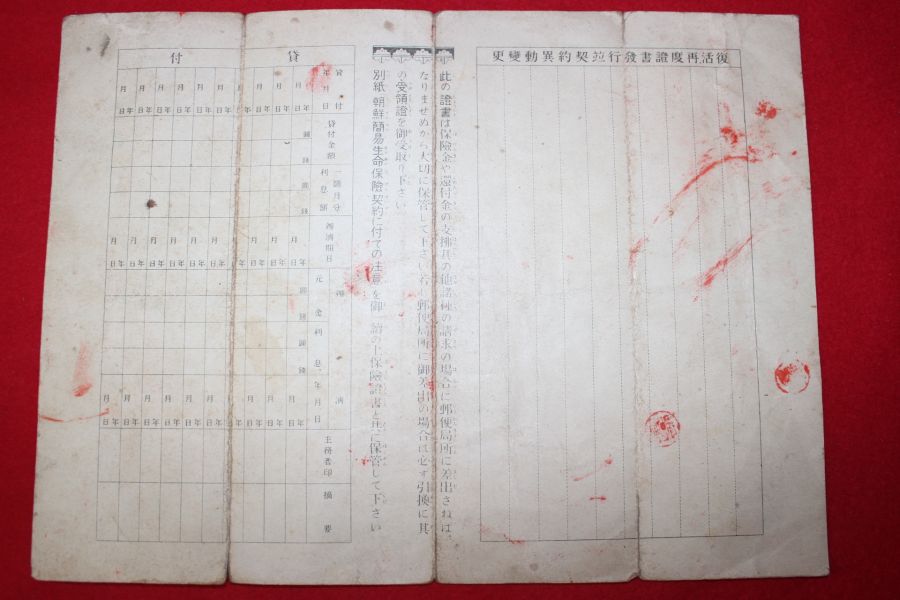 復活再度證書發行竝契約異動變更
此の證書は保險金や還付金の支拂其の他諸種の請求の場合に郵便局所に差出さねは、
なりませぬから大切に保管して下さい若し郵便局所に御差出の場合は必す引換に其
の受領證を御受取り下さい
別紙 朝鮮簡易生命保險契約に付ての注意を御 讀の上保險證書と共に保管して下さい
貸付
貸付
年月日
貸付金額
一箇月分
利息額
辨濟期日
辨濟
元金
利息
年月日
主務者印
摘要
年月日
圓
錢
圓
錢
年月日
圓
錢
圓
錢
年月日